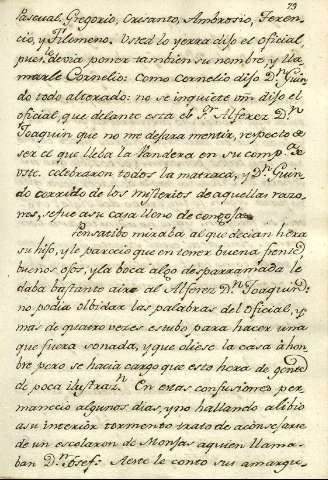 79
Pascual, Gregorio, Crisanto, Ambrosio, Teren-
cio, y Filomeno. Usted lo yerra dijo el oficial,
pues le devia poner tambien su nombre, y lla-
marle Cornelio: como cornelio dijo Dn. Guin
do todo alterado: no se inquiete vm dijo el
oficial, que delante está el Sr. Alferez Dn.
Joaquin que no me dejara mentir, respecto de
ser el que lleba la vandera en su compa. de
vste. celebraron todos la matraca, y Dn. Guin
do corrido de los misterios de aquellas razo-
nes, se fue a su casa lleno de congojas.
Pensatibo miraba al que decian hera
su hijo, y le parecio que en tener buena frente,
buenos ojos, y la boca algo desparramada le
daba bastante aire al Alferez Dn. Joaquin:
no podia olbidar las palabras del oficial, y
mas de quatro veces estubo para hacer una
que fuera sonada, y que oliese la casa á hom
bre pero se hacia cargo que esto hera de gente
de poca ilustrazn. En estas confusiones per-
maneció algunos dias, y no hallando alibio
a su interior tormento trato de aconsejarse
de un escolaron de Monjas a quien llama-
ban Dn. Josef. A este le conto sus amargu-